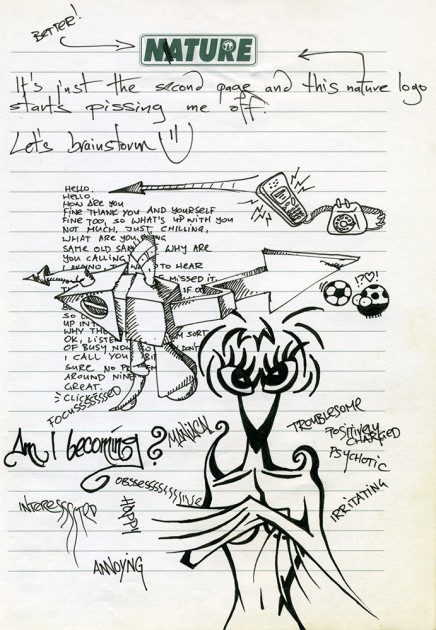 BETTER!
NATURE
It's just the second page and this nature logo
starts pissing me off.
Let's brainstorm
HELLO.
HELLO.
HOW ARE YOU
FINE THANK YOU AND YOURSELF
FINE TOO, SO WHAT'S UP WITH YOU
NOT MUCH, JUST CHILLING,
WHAT ARE YOU
SAME OLD WHY ARE
YOU CALLING
TO HEAR
MISSED IT.
IF
SO
UP
WHY SORT
OK, LISTEN
OF BUSY NOW DON'T
I CALL YOU
SURE NO
AROUND
GREAT.
CLICK
!?♡!
FOCUSSSSSSED
MANIACAL
Am I becoming?
TROUBLESOME
POSITIVELY
CHARGED
PSYCHOTIC
OBSSESSSSSSIVE
IRRITATING
INTERESSSSTED
HAPPY
ANNOYING